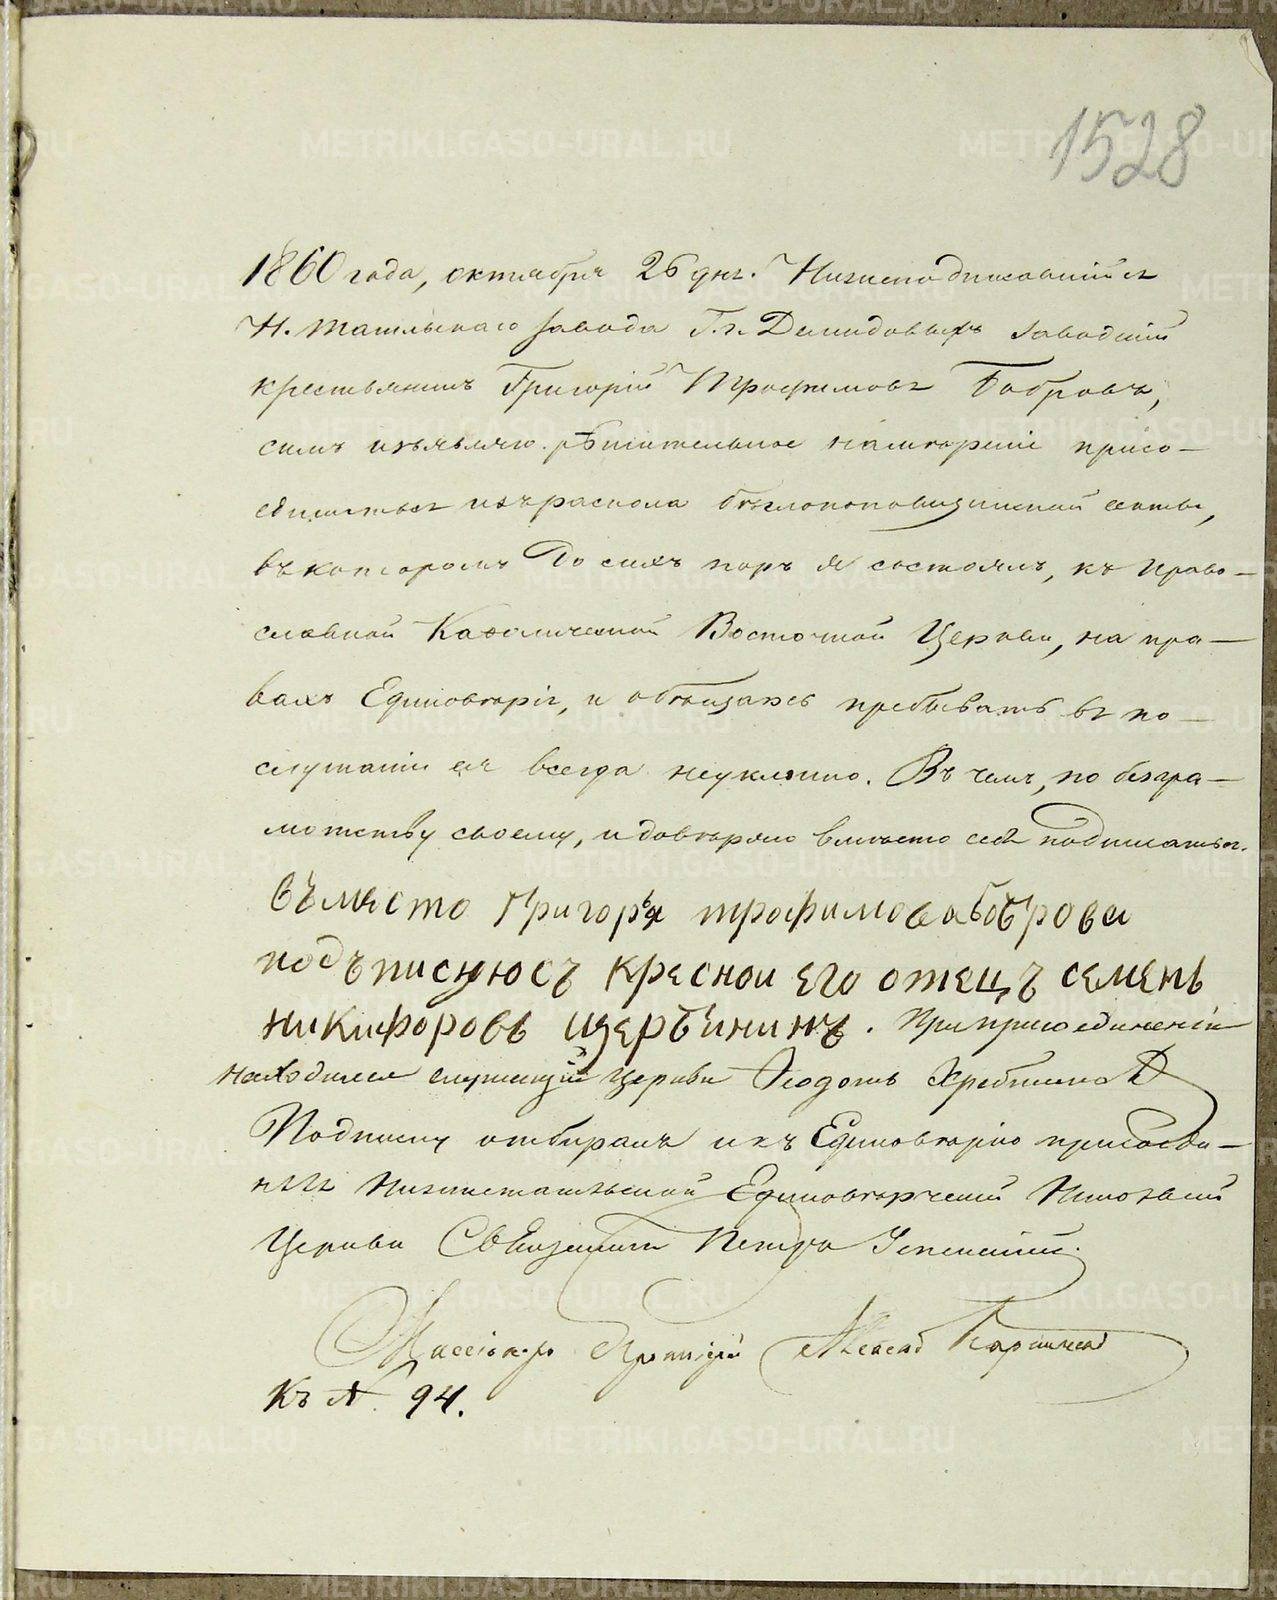 1528
1860 года, октября 26 дня. Нижеподписавшійся
Н. Тагильскаго завода Г.г. Демидовыхъ заводскій
крестьянинъ Григорій Трофимовъ Бобровъ,
симъ изъявляю рѣшительное намѣреніе присо-
единиться изъ раскола бѣглопоповщинской секты,
въ которомъ до сихъ поръ я состоялъ, къ Право-
славной Каѳолической Восточной Церкви, на пра-
вахъ Единовѣрія, и обѣщаюсь пребывать въ по-
слушаніи ея всегда неуклонно. Въ чемъ, по безгра-
мотству своему, и довѣряю вмѣсто себя подписаться.
въместо Григорья трофимова боброва
подъписуюсъ кресной его отецъ семенъ
никифоровъ щербининъ. При присоединеніи
находился служащій церкви Ѳеодотъ Хребтиковъ
Подписку отбиралъ и къ Единовѣрію присоеди-
нилъ Нижнетагильской Единовѣрческой Николаевской
Церкви Священникъ Петръ Успенскій.
Миссіонеръ Протоіерей
Къ № 94.
METRIKI.GASO-URAL.RU